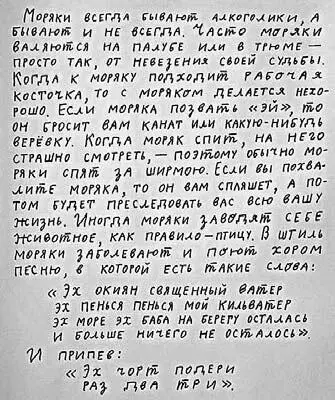 Моряки всегда бывают алкоголики, а
бывают и не всегда. Часто моряки
валяются на палубе или в трюме —
просто так, от невезения своей судьбы.
Когда к моряку подходит рабочая
косточка, то с моряком делается нехо-
рошо. Если моряка позвать «эй», то
он бросит вам канат или какую-нибудь
верёвку. Когда моряк спит, на него
страшно смотреть, — поэтому обычно мо-
ряки спят за ширмою. Если вы похва-
лите моряка, то он вам спляшет, а по-
том будет преследовать вас всю вашу
жизнь. Иногда моряки заводят себе
животное, как правило — птицу. В штиль
моряки заболевают и поют хором
песню, в которой есть такие слова:
«Эх окиян священный ватер
эх пенься пенься мой кильватер
эх море эх баба на берегу осталась
и больше ничего не осталось».
И припев:
«Эх чорт подери
раз два три».